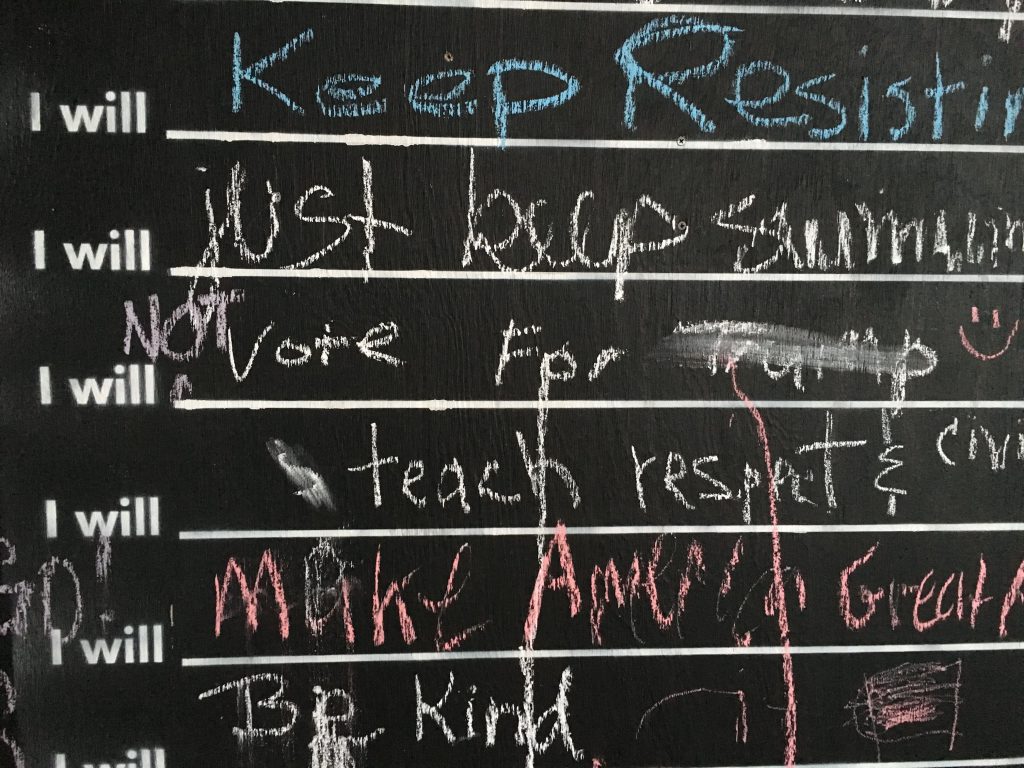 I will Keep Resistin
I will just keep swimmin
I will NOT Vote For Trump
I will teach respect & civi
I will Make America Great A
I will Be Kind
I will